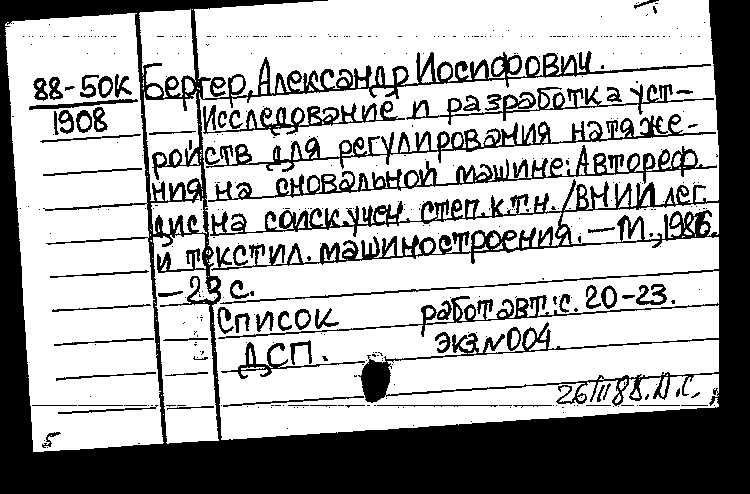 88-50К Бергер, Александр Иосифович.
1908 Исследование и разработка уст-
ройств для регулирования натяже-
ния на сновальной машине: Автореф.
дис на соиск. учен. степ. к.т.н. / ВНИИ лег.
и текстил. машиностроения. — М.,
— 23 с.
Список работ авт.: с. 20-23.
ДСП. Экз. N 004.
26/III 88. Д.С.
5